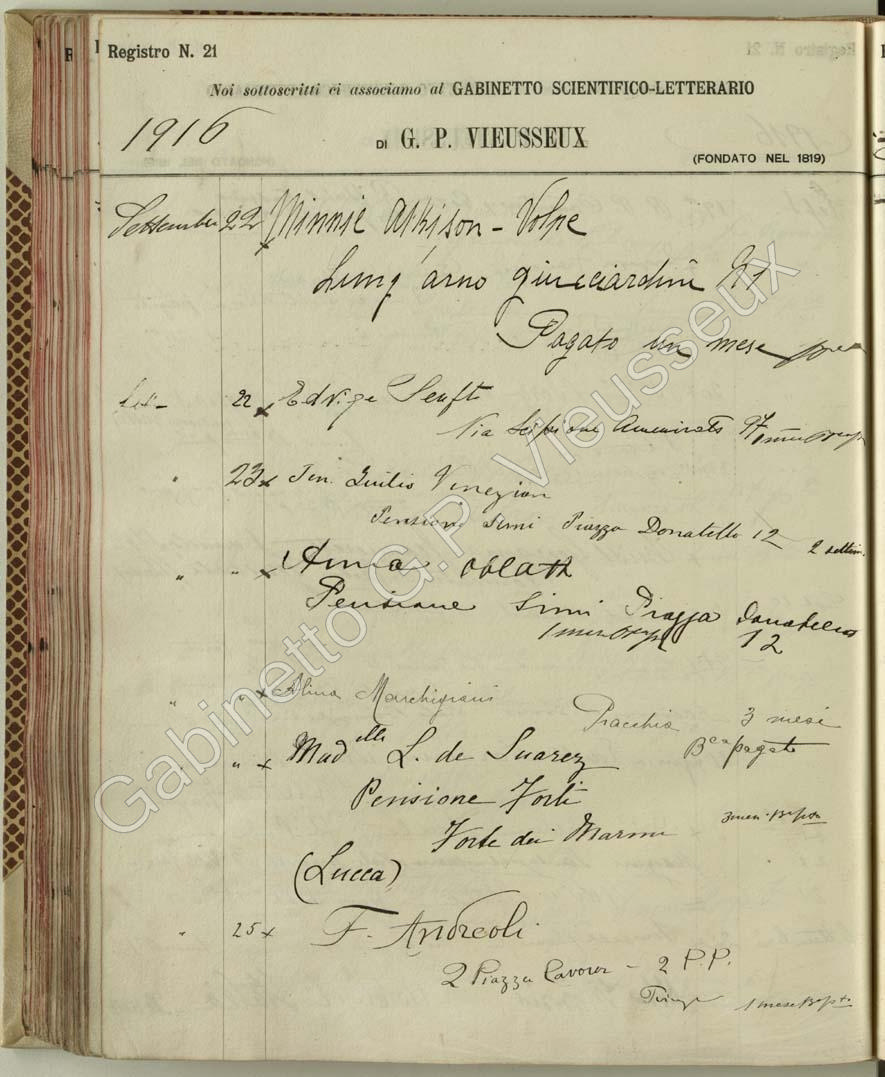 Registro N. 21
Noi sottoscritti ci associamo al GABINETTO SCIENTIFICO-LETTERARIO
1916
DI G. P. VIEUSSEUX
(FONDATO NEL 1819)
Settembre 22 Minnie Atkison - Volpe
Lung'arno guicciardini
Pagato un mese
22 x Edvige Senft
Via Scipione Ammirato
" 23 x Ten. Giulio Venezian
Pensione Simi Piazza Donatello 12 2 settim.
" " x Anna Oblath
Pensione Simi Piazza Donatello
1 mese 12
" " x Alina Marchigiani
Pracchia 3 mesi
" x Mad.elle L. de Suarez pagato
Pensione Forti
Forte dei Marmi
(Lucca)
" 25 x F. Andreoli
2 Piazza Cavour - 2 P.P.
Firenze 1 mese
Gabinetto G.P. Vieusseux